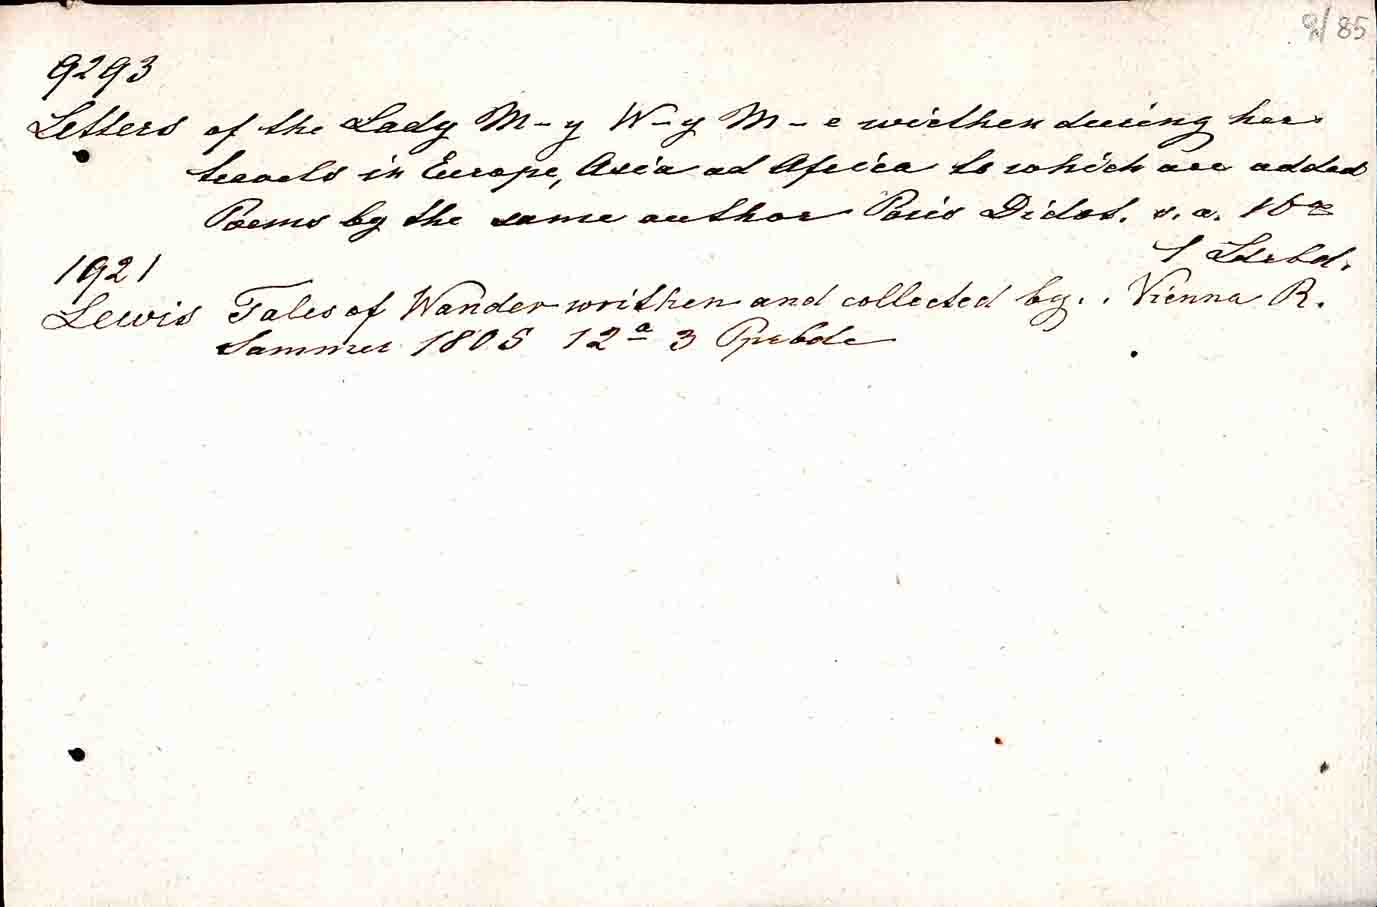 9/85
9293
Letters of the Lady M-y W-y M-e writhen during her
travels in Europe, Asia ad Africa to which are added
Poems by the same author Paris Didot. s. a. 16º
1 Ldrbd.
1921
Lewis Tales of Wander writhen and collected by.. Vienna R.
Sammer 1805 12º 3 Pprbde